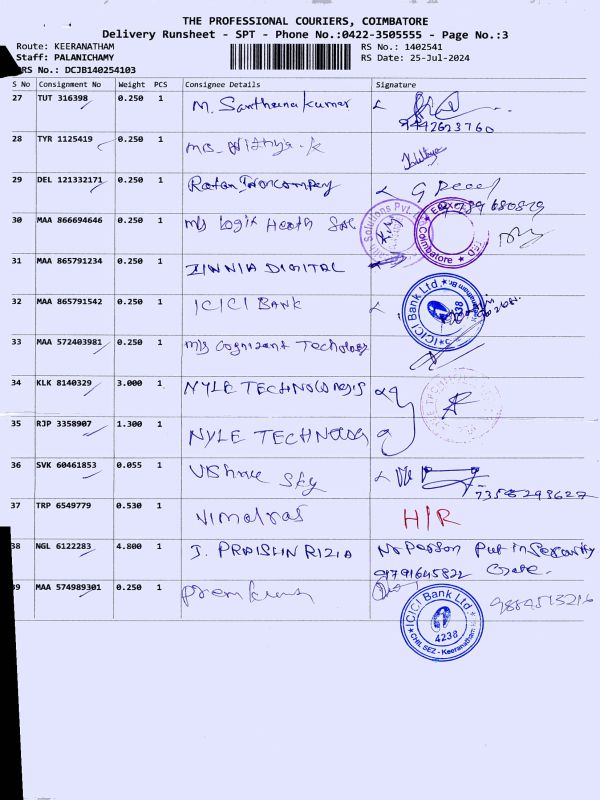 THE PROFESSIONAL COURIERS, COIMBATORE
Delivery Runsheet - SPT - Phone No.:0422-3505555 - Page No.:3
Route: KEERANATHAM RS No.: 1402541
Staff: PALANICHAMY RS Date: 25-Jul-2024
DRS No.: DCJB140254103
S No Consignment No Weight PCS Consignee Details Signature
27 TUT 316398 0.250 1 M. Santhana kumar
9442623760
28 TYR 1125419 0.250 1
29 DEL 121332171 0.250 1 Ratan
30 MAA 866694646 0.250 1 M/s Logix Health
Solutions Pvt.
Coimbatore
31 MAA 865791234 0.250 1 ZINNIA DIGITAL
32 MAA 865791542 0.250 1 ICICI BANK
ICICI Bank Ltd.
4238
33 MAA 572403981 0.250 1 M/s Cognizant Techology
34 KLK 8140329 3.000 1 NYLE
35 RJP 3358907 1.300 1 NYLE
36 SVK 60461853 0.055 1 Vishnu Sky
37 TRP 6549779 0.530 1 Vimalraj H/R
38 NGL 6122283 4.800 1 J. No Person Put in Security
9791645822 Gate.
39 MAA 574989301 0.250 1 Premkumar
ICICI Bank Ltd
4238
CHIL SEZ - Keeranatham
9884513216